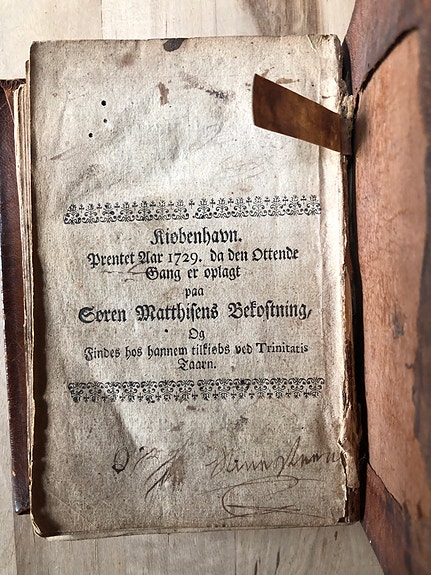 Kiøbenhavn.
Prentet Aar 1729. da den Ottende
Gang er oplagt
paa
Søren Matthisens Bekostning,
Og
Findes hos hannem tilkiøbs ved Trinitatis
Taarn.